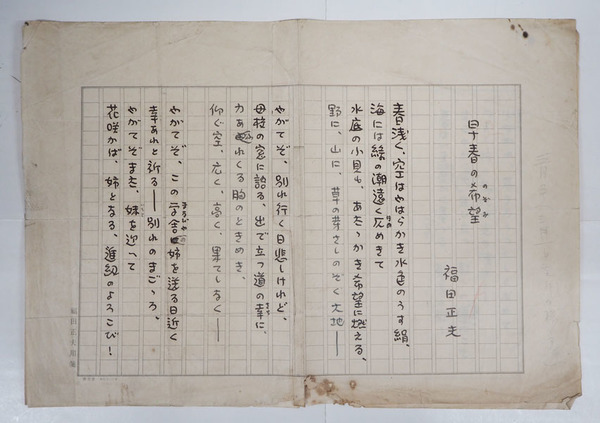 早春の希望
のぞみ
福田正夫
春浅く、空はやはらかき水色のうす絹、
海には緑の潮遠く仄めきて
ほの
水底の小貝も、あたゝかき希望に燃える、
野に、山に、草の芽さしのぞく大地——
やがてぞ、別れ行く日悲しけれど、
母校の窓に語る、出で立つ道の幸に、
さち
力あふれくる胸のときめき、
仰ぐ空、広く、高く、果てしなく——
やがてぞ、この学舎に姉を送る日近く
まなびや
幸あれと祈る——別れのまごゝろ、
やがてぞまた、妹を迎って
花咲かば、姉となる、進級のよろこび!
福田正夫用箋